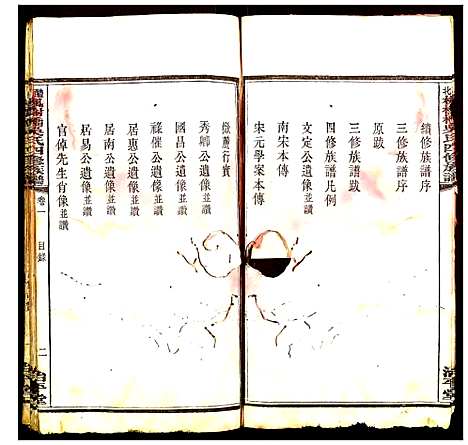 續修族譜序
三修族譜序
原跋
三修族譜跋
四修族譜凡例
文定公遺像並讚
南宋本傳
宋元學案本傳
秀卿公遺像並讚
國昌公遺像並讚
祿催公遺像並讚
居惠公遺像並讚
居南公遺像並讚
居易公遺像並讚
官倬先生肖像並讚
氏四修族譜
卷一
目錄
二